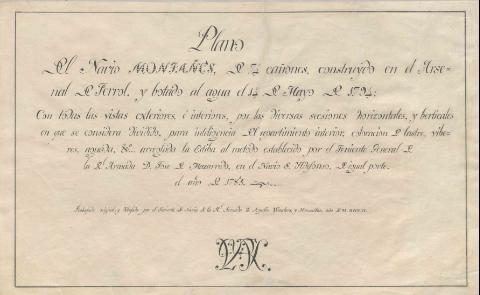 Plano
Del Navio MONTAÑES, De 74 cañones, construydo en el Arse-
nal De Ferrol, y botado al agua el 14 De Mayo De 1794;
Con todas las vistas exteriores, é interiores, por las diversas secsiones horizontales, y berticales
en que se considera dividido, para inteligencia Del repartimiento interior, colocacion De lastre, vibe-
res, aguada, &c. arreglada la Estiba al metodo establecido por el Teniente General De
la Rl. Armada D. Jose De Mazarredo, en el Navio S. Ildefonso, De igual porte,
el año De 1785.
por el Teniente De Navio De la Rl. Armada D. Agustin